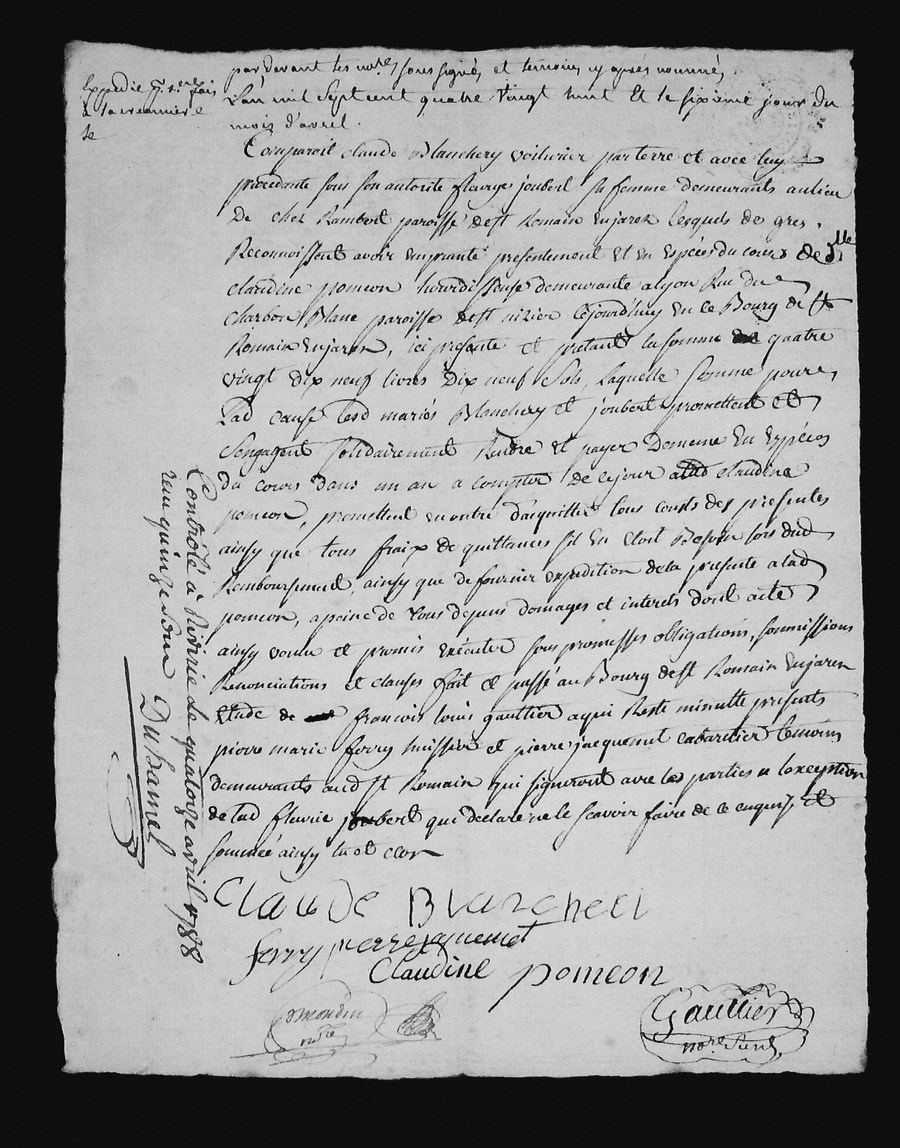 Expedié p.r 1.ere fois
a la creanciere
pardevant les no.res soussignés et temoins cy après nommés
L'an mil sept cent quatre vingt huit et le sixieme jour du
mois d'avril.
Comparoit claude Blanchery voiturier par terre et avec luy
procedante sous son autorité fleurye joubert sa femme demeurants au lieu
De chez Rambert paroisse de st Romain en jarez lesquels de gres
Reconnoissent avoir emprunté presentement et en especes du cours de dlle
claudine pomeon hourdisseuse demeurante a lyon Rue du
charbon Blanc paroisse de st nizier cejourd'huy en ce Bourg de st
Romain en jarez, ici presente et pretant la somme de quatre
vingt dix neuf livres Dix neuf sols, laquelle somme pour
Lad cause lesd mariés Blanchery et joubert promettent et
sengagent solidairement Rendre et payer De meme En Especes
du cours dans un an a compter de ce jour a lad claudine
pomeon, promettent en outre d'acquitter tous couts des presentes
ainsy que tous fraix de quittances sil En Etoit Besoin lors dud
Remboursement, ainsy que de fournir expedition de la presente a lad
pomeon, a peine de tous depens domages et interets dont acte
ainsy voulu et promis executer sous promesses obligations, soumissions
Renonciations et clauses fait et passé au Bourg de st Romain en jarez
Etude de francois louis gaultier a qui Reste minutte presents
pierre marie ferry huissier et pierre jacquemet cabaretier temoins
demeurants aud st Romain qui signeront avec les parties a lexception
de lad fleurie joubert qui declare ne le scavoir faire de ce enquise et
sommée ainsy lu et clos
Claude Blancheri
ferry pierre jaquemet
Claudine pomeon
no.re
Gaultier
no.re
Contrôlé à Riverie le quatorze avril 1788
reçu quinze sous
Duhamel